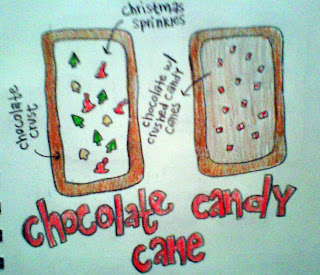 christmas
sprinkles
chocolate
crust
chocolate w/
crushed candy
canes
chocolate candy
cane